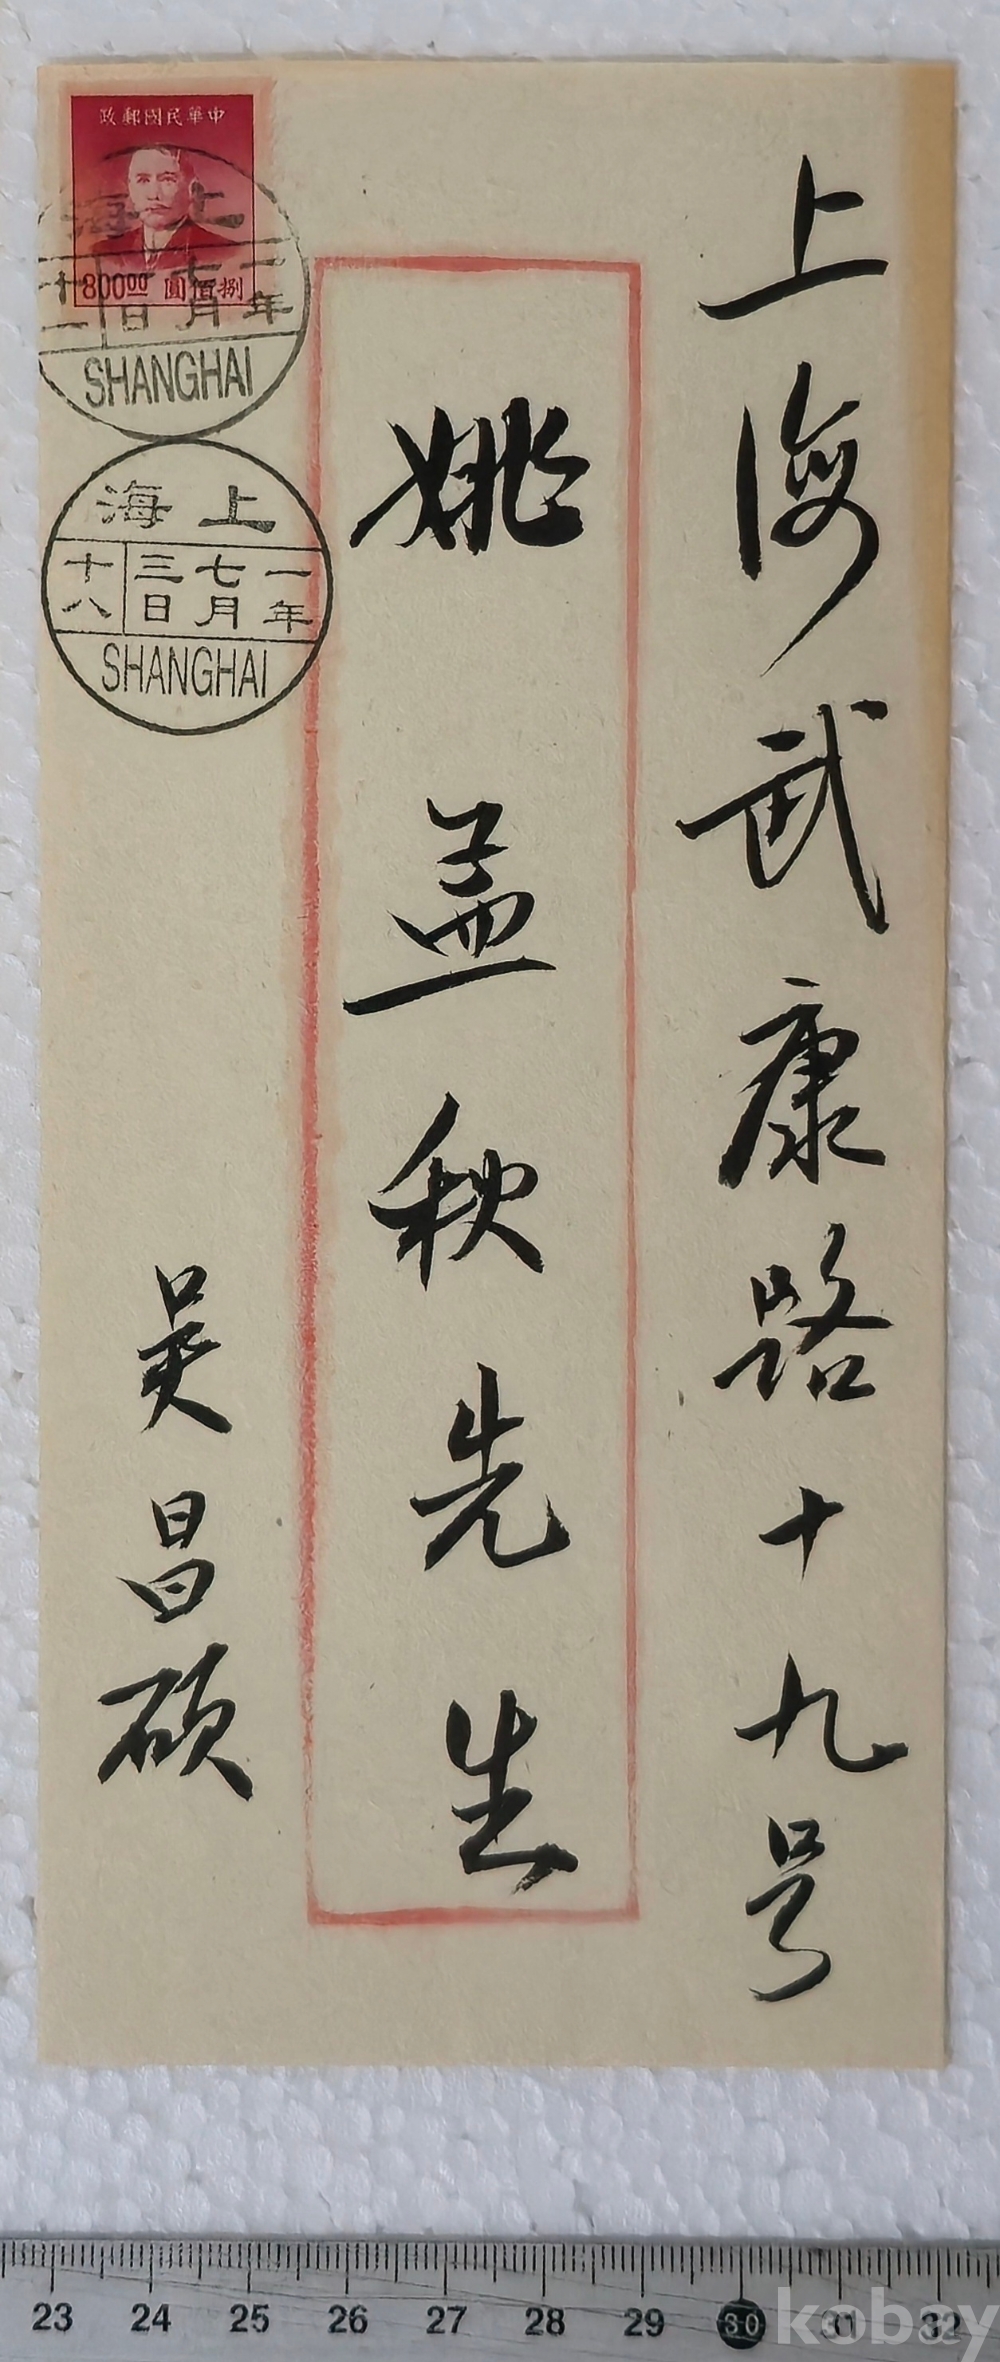 上海武康路十九号
姚孟秋先生
吴昌硕
中華民國郵政
捌佰圓
800.00
上海
一年
七月
日
十一
SHANGHAI
上海
一年
七月
三日
十八
SHANGHAI
23 24 25 26 27 28 29 30 31 32
kobay